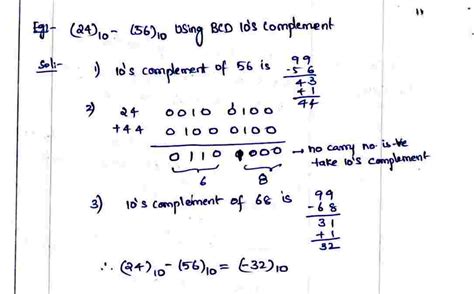 11
Eg:- (24)10 - (56)10 Using BCD 10's Complement
Sol:- 1) 10's complement of 56 is 99
-56
43
+1
44
2) 24 0010 0100
+44 0100 0100
0110 1000 → no carry no. is -ve
take 10's complement
6 8
3) 10's complement of 68 is 99
-68
31
+1
32
∴ (24)10 - (56)10 = (-32)10